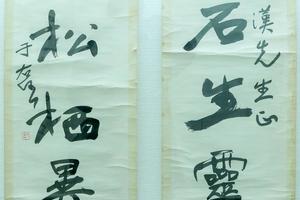 漢先生正
石生靈
松栖異
于右任